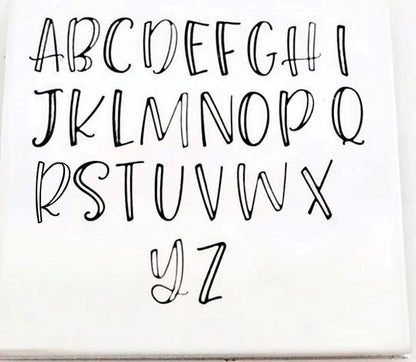 ABCDEFGHI
JKLMNOPQ
RSTUVWX
YZ